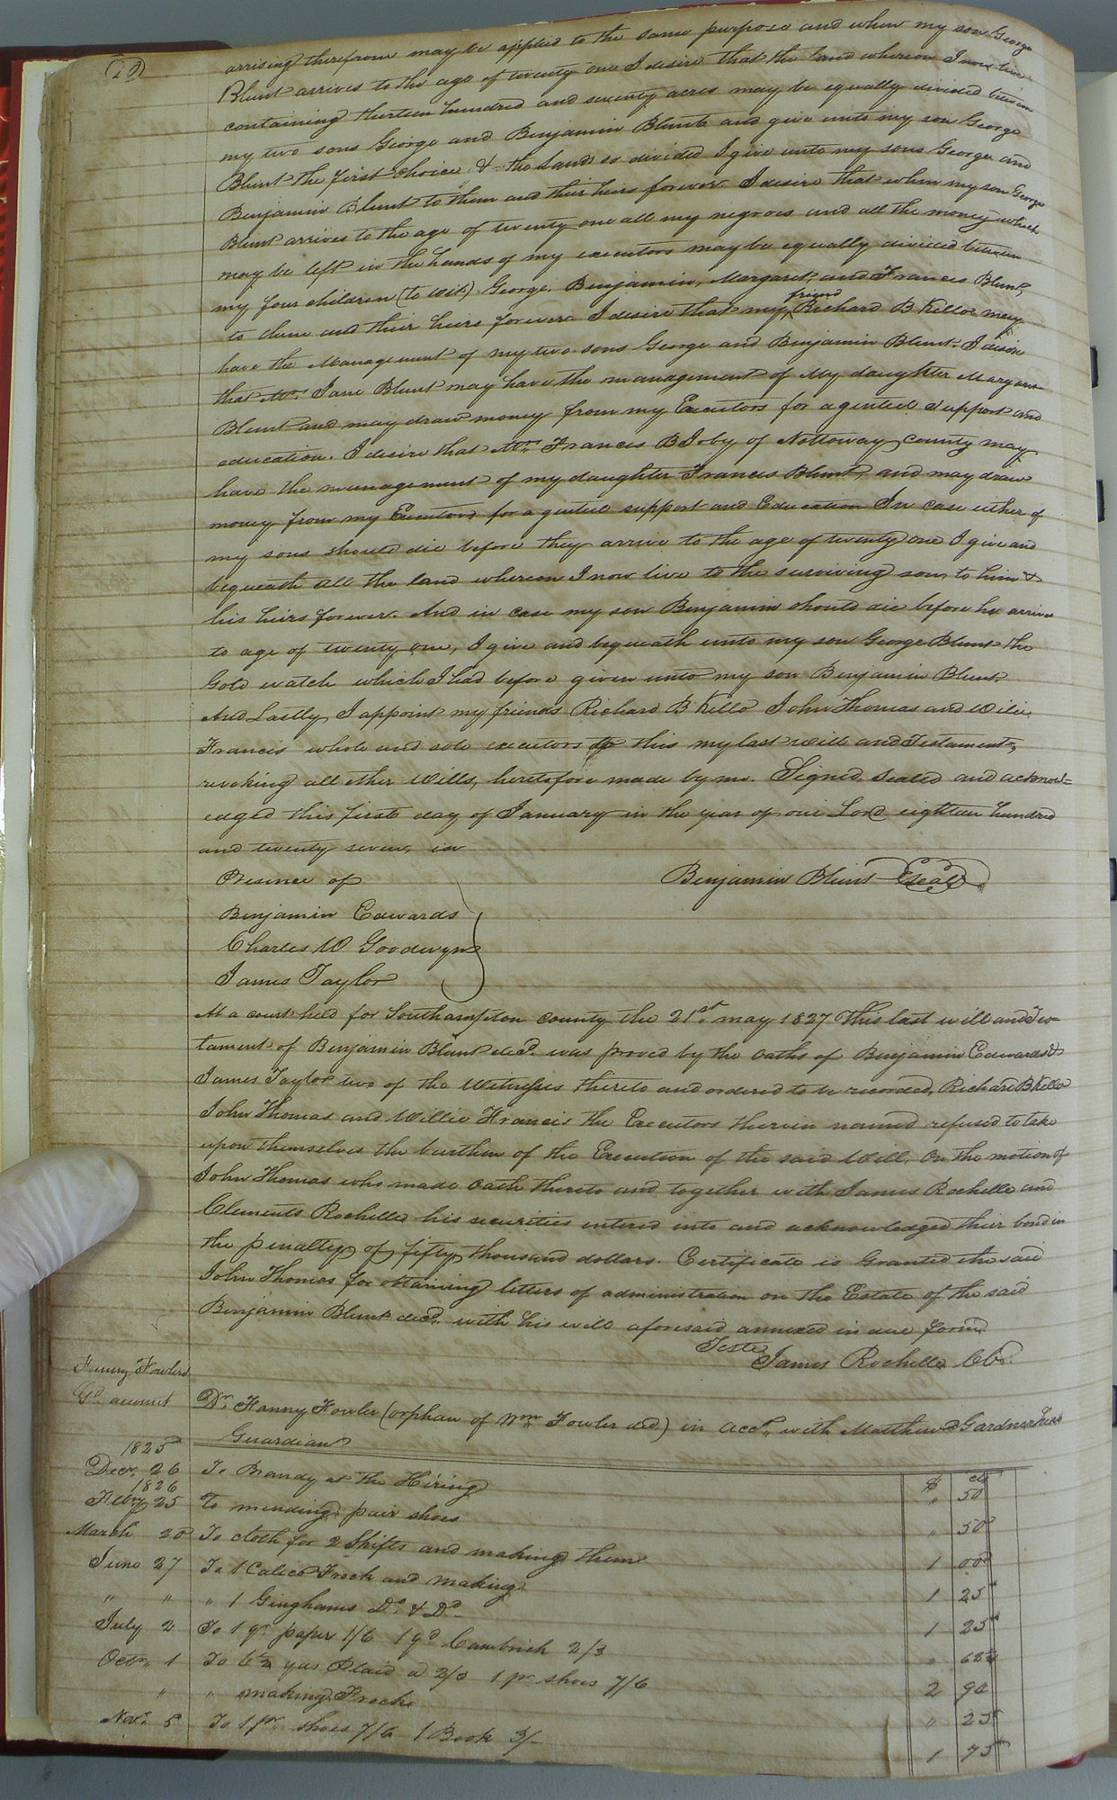 (20)
arrising therefrom may be applied to the same purpose and when my son George
Blunt arrives to the age of twenty one I desire that the land whereon I now live
containing thirteen hundred and seventy acres may be equally divided between
my two sons George and Benjamin Blunt and give unto my son George
Blunt the first choice & the land so divided I give unto my sons George and
Benjamin Blunt to them and their heirs forever I desire that when my son George
Blunt arrives to the age of twenty one all my negroes and all the money which
may be left in the hands of my executors may be equally divided between
my four children (to wit) George, Benjamin, Margaret, and Frances Blunt,
to them and their heirs forever I desire that my friend Richard B Kello may
have the Management of my two sons George and Benjamin Blunt. I desire
that Mrs Jane Blunt may have the management of My daughter Margaret
Blunt and may draw money from my Executors for a genteel support and
education. I desire that Mrs Frances B of Nottoway county may
have the management of my daughter Frances Blunt, and may draw
money from my Executors for a genteel support and Education In case either of
my sons should die before they arrive to the age of twenty one I give and
bequeath all the land whereon I now live to the surviving son, to him &
his heirs forever. And in case my son Benjamin should die before he arrive
to age of twenty one, I give and bequeath unto my son George Blunt the
Gold watch which I had before given unto my son Benjamin Blunt.
And Lastly I appoint my friends Richard B Kello John Thomas and Willie
Francis whole and sole executors to this my last will and Testament,
revoking all other Wills, heretofore made by me. Signed, Sealed and acknowl=
edged this first day of January in the year of our Lord eighteen hundred
and twenty seven, in
Presence of
Benjamin Blunt Seal
Benjamin Edwards
Charles W Goodwyn
James Taylor
At a court held for Southampton county the 21st may 1827 This last will and Tes-
tament of Benjamin Blunt decd. was proved by the oaths of Benjamin Edwards &
James Taylor two of the Witnesses thereto and ordered to be recorded, Richard B Kello
John Thomas and Willie Francis the Executors therein named refused to take
upon themselves the burthen of the Execution of the said Will, On the motion of
John Thomas who made oath thereto and together with James Rochelle and
Clements Rochelle his securities entered into and acknowledged their bond in
the penalty of fifty thousand dollars. Certificate is Granted the said
John Thomas for obtaining letters of administration on the Estate of the said
Benjamin Blunt decd. with his will aforesaid annexed in due form
Teste
James Rochelle
Fanny Fowlers
Gd account
Dr Fanny Fowler (orphan of Wm Fowler decd) in acct. with Matthew Gardner
Guardian
1825
$ cts
Decr. 26 To Brandy at the Hiring " 50
1826
Feby 25 To mending pair shoes " 50
March 20 To cloth for 2 Shifts and making them 1 00
June 27 To 1 Calico Frock and making 1 25
" " " 1 Ginghams Do & Do 1 25
July 2 To 1 qr paper 1/6 1 yd Cambrick 2/3 " 62½
Octr. 1 To 6½ yds Plaid a 2/3 1 pr shoes 7/6 2 90
" " making Frock " 25
Novr. 5 To 1 pr shoes 7/6 1 Book 3/- 1 75